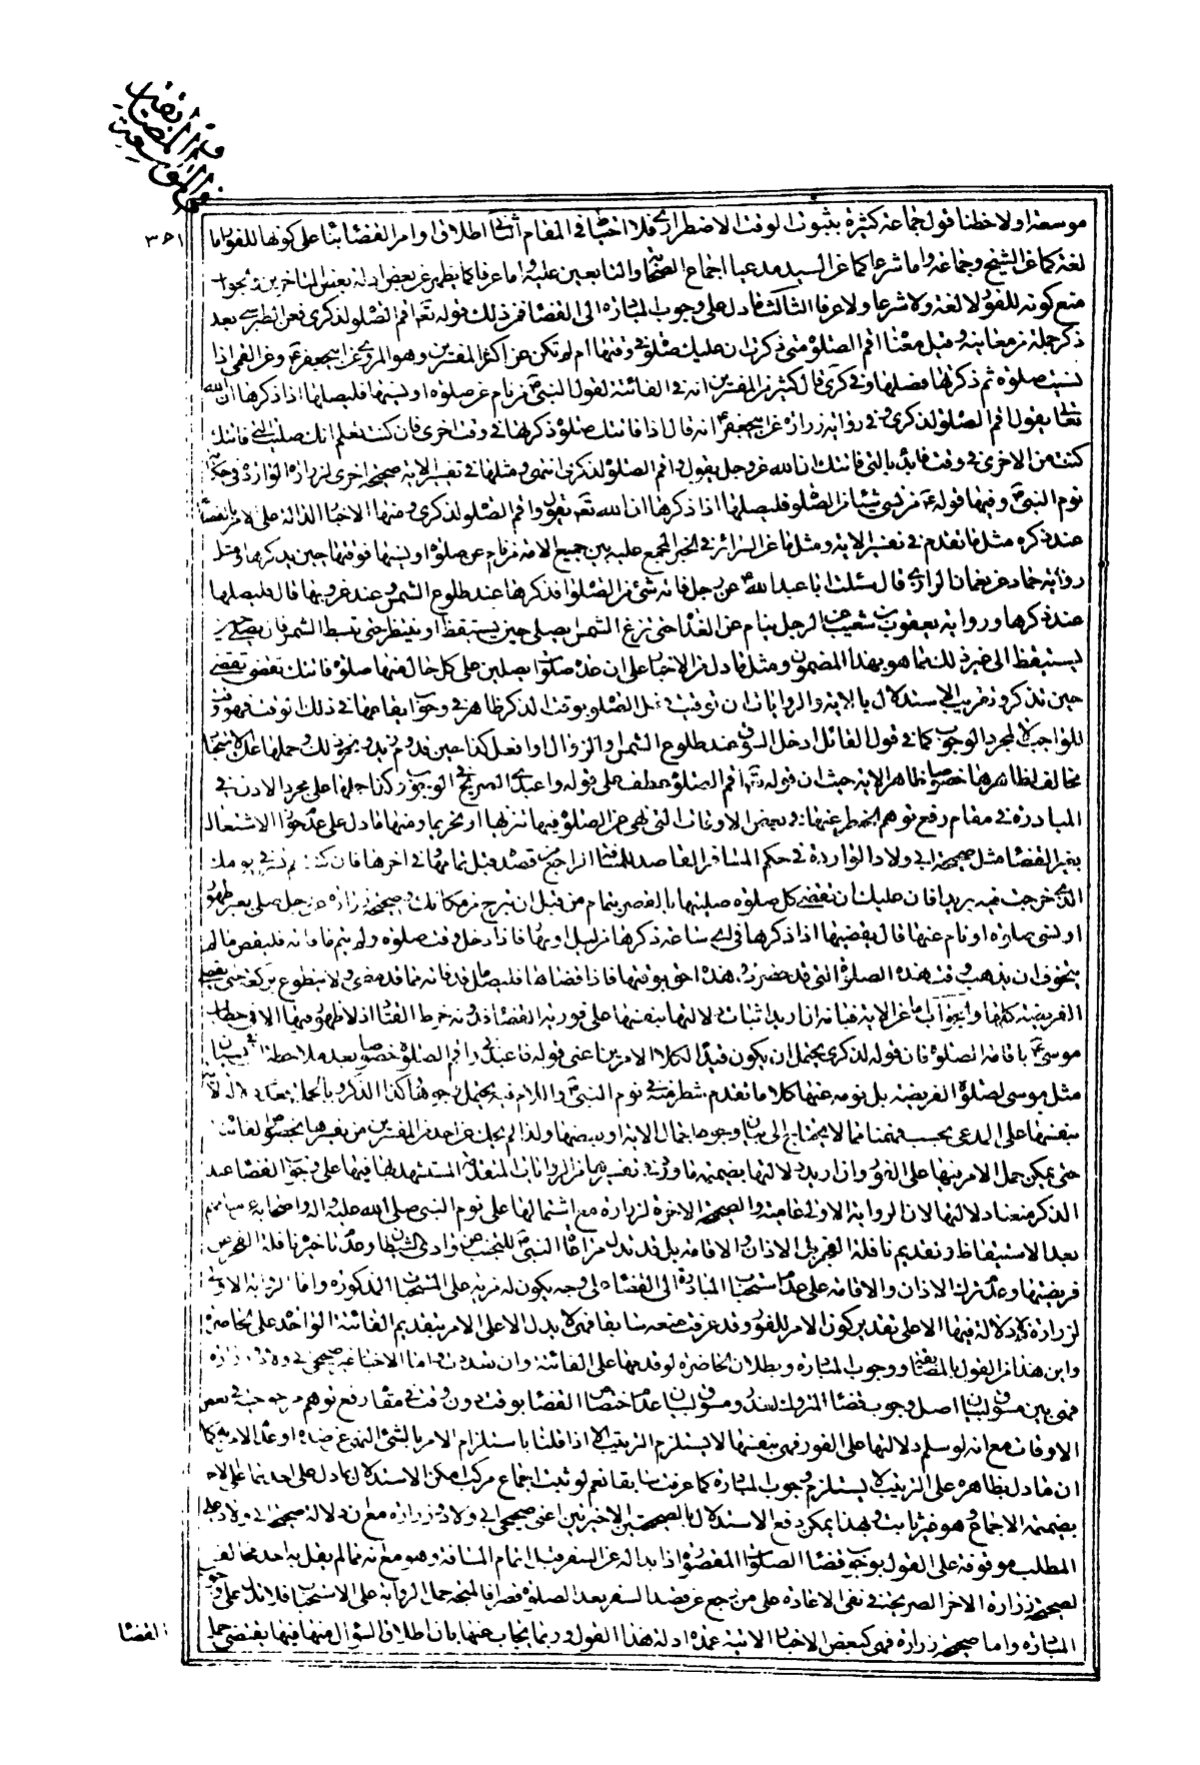 في المواسعة
والمضايقة
٣٥١
موسعة ولاحظنا قول جماعة كثيرة بثبوت الوقت الاضطراري فلا احتياط في المقام الثاني اطلاق اوامر القضا بناء على كونها للفور اما
لغة كما عن الشيخ وجماعة واما شرعا كما عن السيد مدعيا اجماع الصحابة والتابعين عليه واما عرفا كما يظهر من بعض ادلة بعض المتاخرين وجوابه
منع كونه للفور لا لغة ولا شرعا ولا عرفا الثالث ما دل على وجوب المبادرة الى القضا فمن ذلك قوله تعالى اقم الصلوة لذكري فعن الطبرسي بعد
ذكر جملة من معانيه وقيل معناه اقم الصلوة متى ذكرت ان عليك صلوة في وقتها ام لم تكن عن اكثر المفسرين وهو المروي عن ابيجعفر ع وعن القمي اذا
نسيت صلوة ثم ذكرتها فصلها وفي كرى قال كثير من المفسرين انه في الفائتة لقول النبي ص من نام عن صلوة او نسيها فليصلها اذا ذكرها ان الله
تعالى يقول اقم الصلوة لذكري وفي رواية زرارة عن ابيجعفر ع انه قال اذا فاتتك صلوة ذكرتها في وقت اخرى فان كنت تعلم انك صليت التي فاتتك
كنت من الاخرى في وقت فابدء بالتي فاتتك ان الله عز وجل يقول واقم الصلوة لذكري انتهى ومثلها في تفسير الاية صحيحة اخرى لزرارة الواردة في حكاية
نوم النبي ص وفيها قوله ع من نسي شيئا من الصلوة فليصلها اذا ذكرها ان الله تعالى يقول واقم الصلوة لذكري ومنها الاخبار الدالة على الامر بالقضا
عند ذكره مثل ما تقدم في تفسير الاية ومثل ما عن السرائر في الخبر المجمع عليه بين جميع الامة من نام عن صلوة او نسيها فوقتها حين يذكرها ومثل
رواية حماد عن نعمان الرازي قال سئلت ابا عبد الله ع عن رجل فاته شئ من الصلوة فذكرها عند طلوع الشمس وعند غروبها قال فليصلها
عند ذكرها ورواية يعقوب بن شعيب عن الرجل ينام عن الغداة حتى تبزغ الشمس ايصلي حين يستيقظ او ينتظر حتى تنبسط الشمس قال يصلي حين
يستيقظ الى غير ذلك مما هو بهذا المضمون ومثل ما دل من الاخبار على ان عدة صلوات يصلين على كل حال منها صلوة فاتتك تقضي
حين تذكر وتقريب الاستدلال بالاية والروايات ان توقيت فعل الصلوة بوقت الذكر ظاهر في وجوب ايقاعها في ذلك الوقت فهو وقت
للواجب لا لمجرد الوجوب كما في قول القائل ادخل السوق عند طلوع الشمس والزوال او افعل كذا حين قدوم زيد ونحو ذلك وحملها على الاستحباب
مخالف لظاهرها خصوصا ظاهر الاية حيث ان قوله تعالى اقم الصلوة عطف على قوله واعبدني الصريح في الوجوب وكذا حملها على مجرد الاذن في
المبادرة في مقام رفع توهم الحظر عنها في بعض الاوقات التي نهي عن الصلوة فيها تنزيها او تحريما ومنها ما دل على عدم جواز الاشتغال
بغير القضا مثل صحيحة ابي ولاد الواردة في حكم المسافر القاصد للمسافة اذا رجع عن قصده قبل تمامها وفي اخرها فان كنت لم تسر في يومك
الذي خرجت فيه بريدا فان عليك ان تقضي كل صلوة صليتها بالقصر بتمام من قبل ان تبرح من مكانك وصحيحة زرارة عن رجل صلى بغير طهور
او نسي صلوة او نام عنها قال يقضيها اذا ذكرها في اي ساعة ذكرها من ليل او نهار فاذا دخل وقت صلوة ولم يتم ما فاته فليقض ما لم
يتخوف ان يذهب وقت هذه الصلوة التي قد حضرت وهذه احق بوقتها فاذا قضاها فليصل ما قد فاته مما قد مضى ولا يتطوع بركعة حتى يقضي
الفريضة كلها والجواب اما عن الاية فبانه ان اريد اثبات دلالتها بنفسها على فورية القضا فدونه خرط القتاد اذ لا ظهور فيها الا في خطاب
موسى ع باقامة الصلوة فان قوله لذكري يحتمل ان يكون قيدا لكلا الامرين اعني قوله فاعبدني واقم الصلوة خصوصا بعد ملاحظة
مثل موسى لصلوة الفريضة بل نومه عنها كلاما تقدم شطر منه في نوم النبي ص واللام فيه يحتمل وجوها كذا الذكر وبالجملة فعدم دلالة الاية
بنفسها على المدعى بحسب فهمنا مما لا يحتاج الى بيان وجوه اجمال الاية اوبعضها ولذا لم يحك عن احد من المفسرين من تفسيرها بخصوص الفائتة
حتى يمكن حمل الامر فيها على الفور وان اريد دلالتها بضميمة ما ورد في تفسيرها من الروايات المتقدمة المستشهد بها فيها على وجوب القضا عند
الذكر منعنا دلالتها لان الرواية الاولى عامية والصحيحة الاخرة لزرارة مع اشتمالها على نوم النبي صلى الله عليه واله واصحابه
بعد الاستيقاظ وتقديم نافلة الفجر بل الاذان والاقامة بل قد تدل مراعاة النبي ص للتجنب عن وادي الشيطان وعدم تاخير نافلة الفجر عن
فريضتها وعدم ترك الاذان والاقامة على عدم استحباب المبادرة الى القضا على وجه يكون له مزية على المستحبات المذكورة واما الرواية الاولى
لزرارة فلا دلالة فيها الا على تقدير كون الامر للفور وقد عرفت منعه سابقا فهي لا تدل الا على الامر بتقديم الفائتة الواحدة على الحاضرة
واين هذا من القول بالمضايقة ووجوب المبادرة وبطلان الحاضرة لو قدمها على الفائتة وان تعددت واما الاخبار غير صحيحتي ابي ولاد وزرارة
فهي بين مسوق لبيان اصل وجوب قضا المتروك ومسوق لبيان عدم اختصاص القضا بوقت دون وقت في مقام رفع توهم مرجوحية في بعض
الاوقات مع انه لو سلم دلالتها على الفور فهي بنفسها لا يستلزم الترتيب الا اذا قلنا باستلزام الامر بالشئ النهي عن ضده او عدم الامر به كما
ان ما دل بظاهره على الترتيب لا يستلزم وجوب المبادرة كما عرفت سابقا نعم لو ثبت اجماع مركب امكن الاستدلال بما دل على احدهما على الاخر
بضميمة الاجماع وهو غير ثابت وبهذا يمكن دفع الاستدلال بالصحيحتين الاخيرتين اعني صحيحتي ابي ولاد وزرارة مع ان دلالة صحيحة ابي ولاد على
المطلب موقوفة على القول بوجوب قضا الصلوات المقصورة اذا بدا له عن السفر قبل اتمام المسافة وهو مع انه مما لم يقل به احد مخالف
لصحيحة زرارة الاخر الصريحة في نفي الاعادة على من رجع عن قصد السفر بعد الصلوة قصرا فالمتجه حمل الرواية على الاستحباب فلا تدل على وجوب
المبادرة واما صحيحة زرارة فهي كبعض الاخبار الاتية عمدة ادلة هذا القول وربما يجاب عنها بان اطلاق السؤال منها فيها يقتضي حمل
القضا